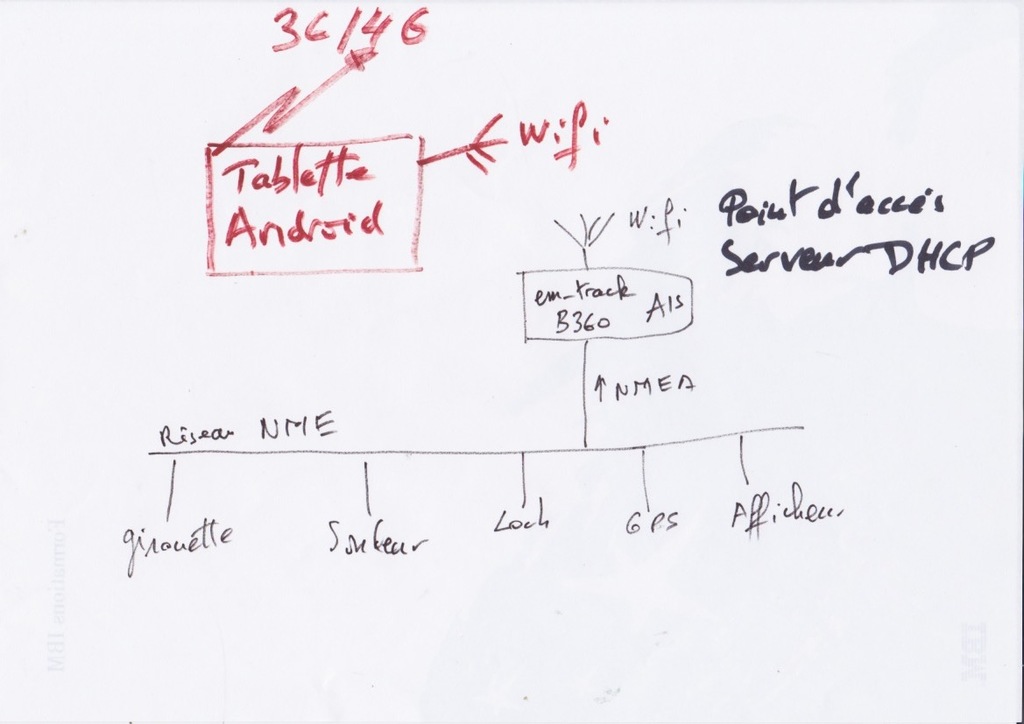 3G/4G
Wifi
Tablette
Android
Wifi
Point d'accès
Serveur DHCP
em-track
B360
AIS
↑ NMEA
Réseau NME
girouette
Sondeur
Loch
GPS
Afficheur
Formations IBM
IBM